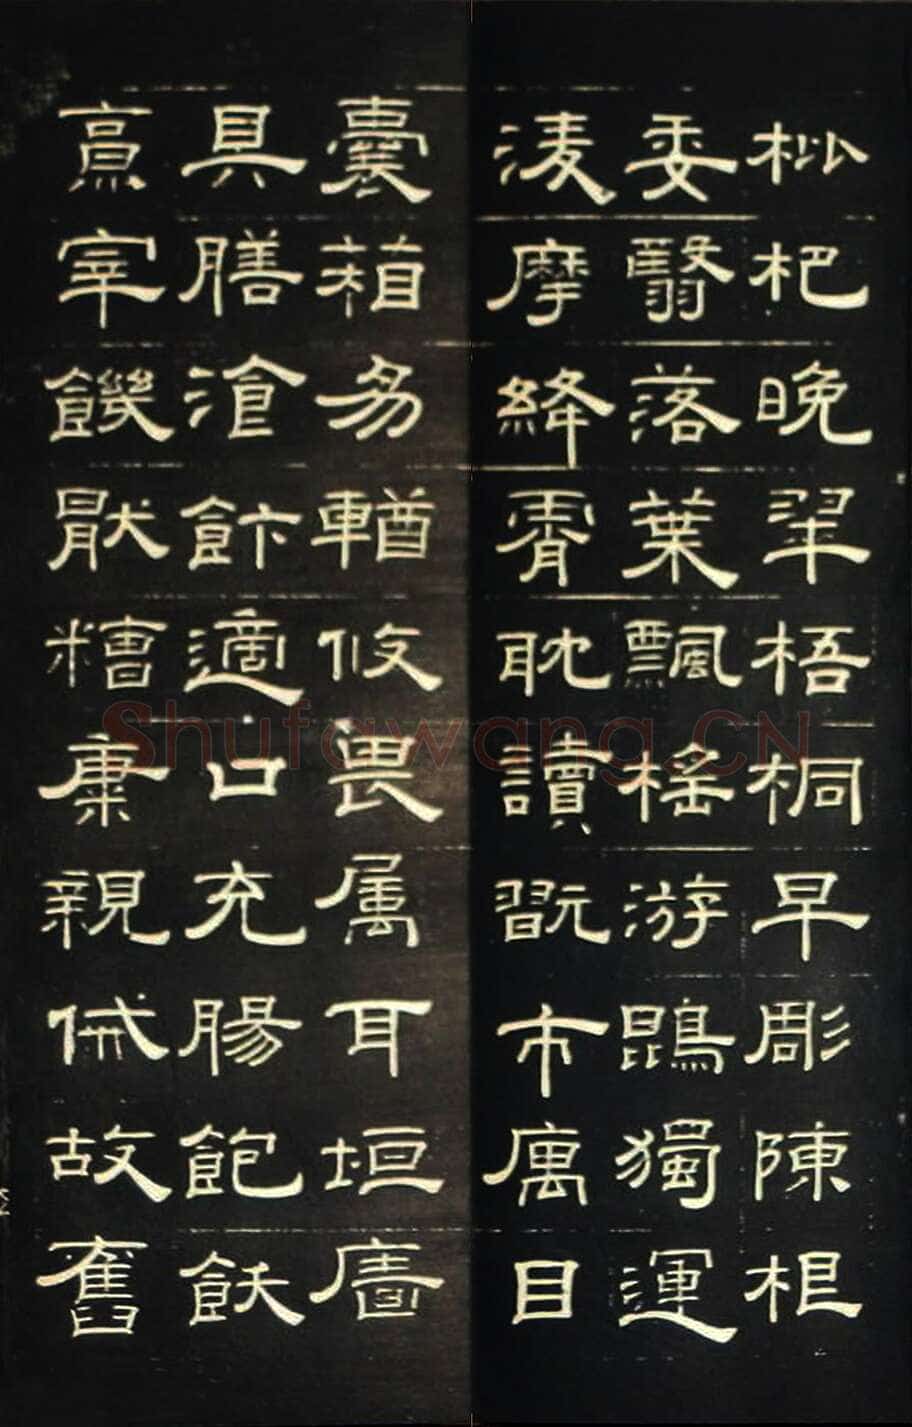 枇杷晚翠梧桐早彫陳根
委翳落葉飄榣游鵾獨運
淩摩絳霄耽讀翫市寓目
囊箱易輶攸畏属耳垣廧
具膳湌飰適口充腸飽飫
烹宰饑猒糟糠親傶故舊
Shufawang.CN